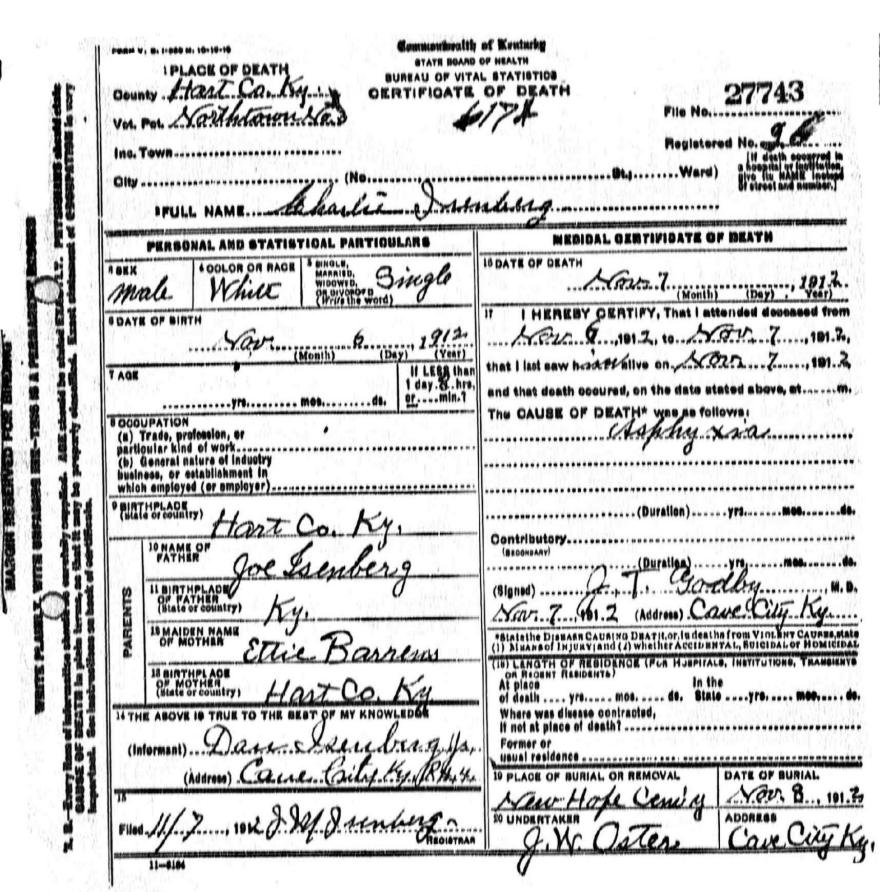 Commonwealth of Kentucky
STATE BOARD OF HEALTH
BUREAU OF VITAL STATISTICS
CERTIFICATE OF DEATH
1 PLACE OF DEATH
County Hart Co. Ky.
Vot. Pct. Northtown No.
Inc. Town
City (No. St.; Ward)
File No. 27743
Registered No.
[If death occurred in
a hospital or institution,
give its NAME instead
of street and number.]
FULL NAME Charlie Isenberg
PERSONAL AND STATISTICAL PARTICULARS
SEX male
COLOR OR RACE White
SINGLE,
MARRIED,
WIDOWED,
OR DIVORCED
(Write the word) Single
6 DATE OF BIRTH
Nov. 6, 1912
(Month) (Day) (Year)
7 AGE
yrs. mos. ds.
If LESS than
1 day 8 hrs.
or min.?
8 OCCUPATION
(a) Trade, profession, or
particular kind of work
(b) General nature of industry
business, or establishment in
which employed (or employer)
9 BIRTHPLACE
(State or country) Hart Co. Ky.
PARENTS
10 NAME OF
FATHER Joe Isenberg
11 BIRTHPLACE
OF FATHER
(State or country) Ky.
12 MAIDEN NAME
OF MOTHER Ettie Barrens
13 BIRTHPLACE
OF MOTHER
(State or country) Hart Co. Ky
14 THE ABOVE IS TRUE TO THE BEST OF MY KNOWLEDGE
(Informant) Dan Isenberg
(Address) Cave City Ky.
15
Filed 11/7, 1912 J M Isenberg
REGISTRAR
11-5184
MEDICAL CERTIFICATE OF DEATH
16 DATE OF DEATH
Nov 7, 1912
(Month) (Day) (Year)
17 I HEREBY CERTIFY, That I attended deceased from
Nov 6, 1912, to Nov 7, 1912,
that I last saw him alive on Nov 7, 1912
and that death occured, on the date stated above, at m.
The CAUSE OF DEATH* was as follows:
Asphyxia
(Duration) yrs. mos. ds.
Contributory
(SECONDARY)
(Duration) yrs. mos. ds.
(Signed) J. T. Godby M. D.
Nov. 7 1912 (Address) Cave City Ky.
*State the DISEASE CAUSING DEATH, or, in deaths from VIOLENT CAUSES, state
(1) MEANS OF INJURY; and (2) whether ACCIDENTAL, SUICIDAL or HOMICIDAL
(18) LENGTH OF RESIDENCE (FOR HOSPITALS, INSTITUTIONS, TRANSIENTS
OR RECENT RESIDENTS)
At place In the
of death yrs. mos. ds. State yrs. mos. ds.
Where was disease contracted,
if not at place of death?
Former or
usual residence
19 PLACE OF BURIAL OR REMOVAL
New Hope
DATE OF BURIAL
Nov. 8, 1912
20 UNDERTAKER
J. W. Oster
ADDRESS
Cave City Ky.
MARGIN RESERVED FOR BINDING